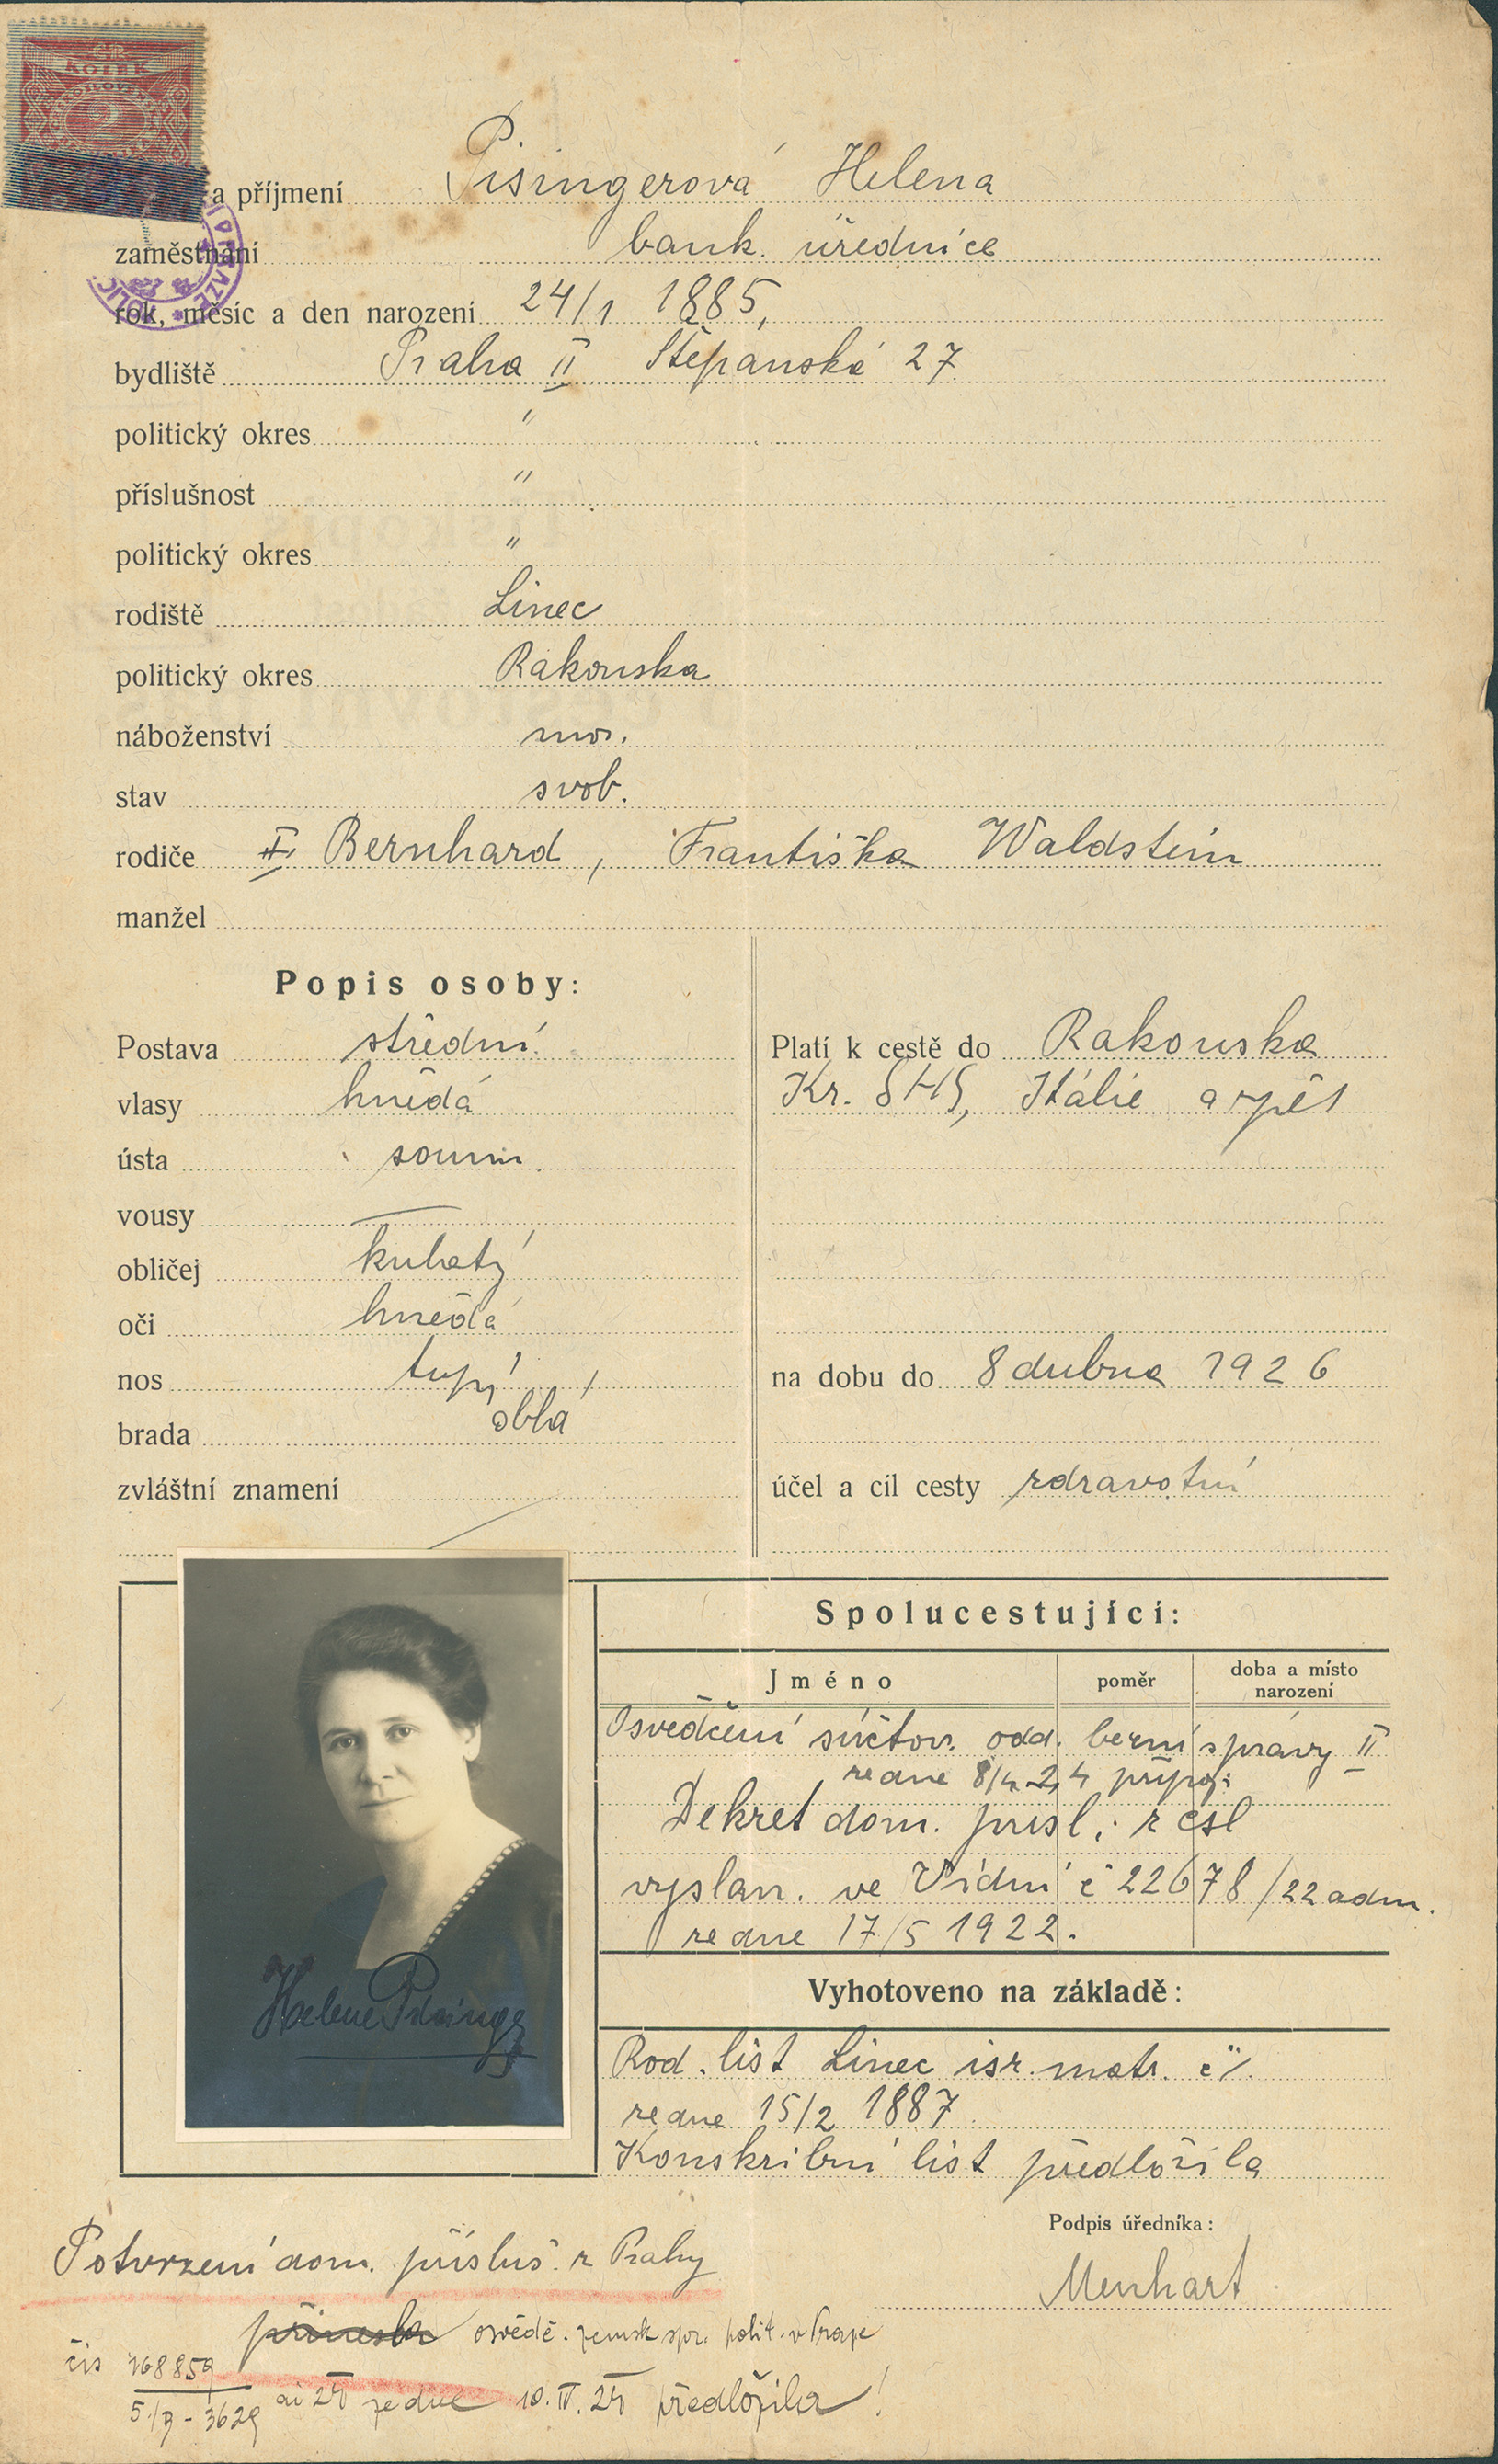 KOLEK
2
a příjmení Pisingerová Helena
zaměstnání bank. úřednice
rok, měsíc a den narození 24/1 1885,
bydliště Praha II Štěpánská 27
politický okres "
příslušnost "
politický okres "
rodiště Linec
politický okres Rakouska
náboženství
stav svob.
rodiče Bernhard, Františka Waldstein
manžel
Popis osoby:
Postava střední
vlasy hnědá
ústa soum.
vousy —
obličej kulatý
oči hnědá
nos tupý
brada oblá
zvláštní znamení
Platí k cestě do Rakouska
Kr. SHS, Itálie a zpět
na dobu do 8 dubna 1926
účel a cíl cesty zdravotní
Spolucestující:
Jméno poměr doba a místo narození
Osvědčení súčtov. odd. berní správy II
ze dne 8/4 24 připoj:
Dekret dom. přísl: z čsl
vyslan. ve Vídni č 22678/22 adm.
ze dne 17/5 1922.
Vyhotoveno na základě:
Rod. list Linec isr. matr. č
ze dne 15/2 1887
Konskribní list předložila
Helene Pisinger
Podpis úředníka:
Menhart
Potvrzení dom. přísluš. z Prahy
přinesla osvědč. zemsk spr. polit. v Praze
čis 168859
5/ - 3629 ai 25 ze dne 10. IV. 25 předložila!